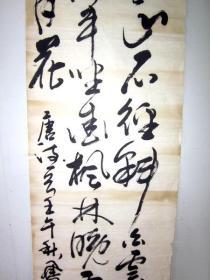 山石徑斜白雲
車坐愛楓林晚
月花
唐詩 壬午秋